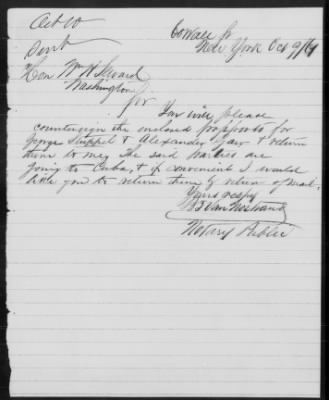 Oct 10
Sent
60 Wall St
New York Oct 9/61
Hon Wm H Seward
Washington
Sir
You will please
countersign the enclosed passports for
George & Alexander & return
them to me, the said parties are
going to Cuba, & if convenient I would
like you to return them by return of mail.
Yours respy
Van Nostrand
Notary Public